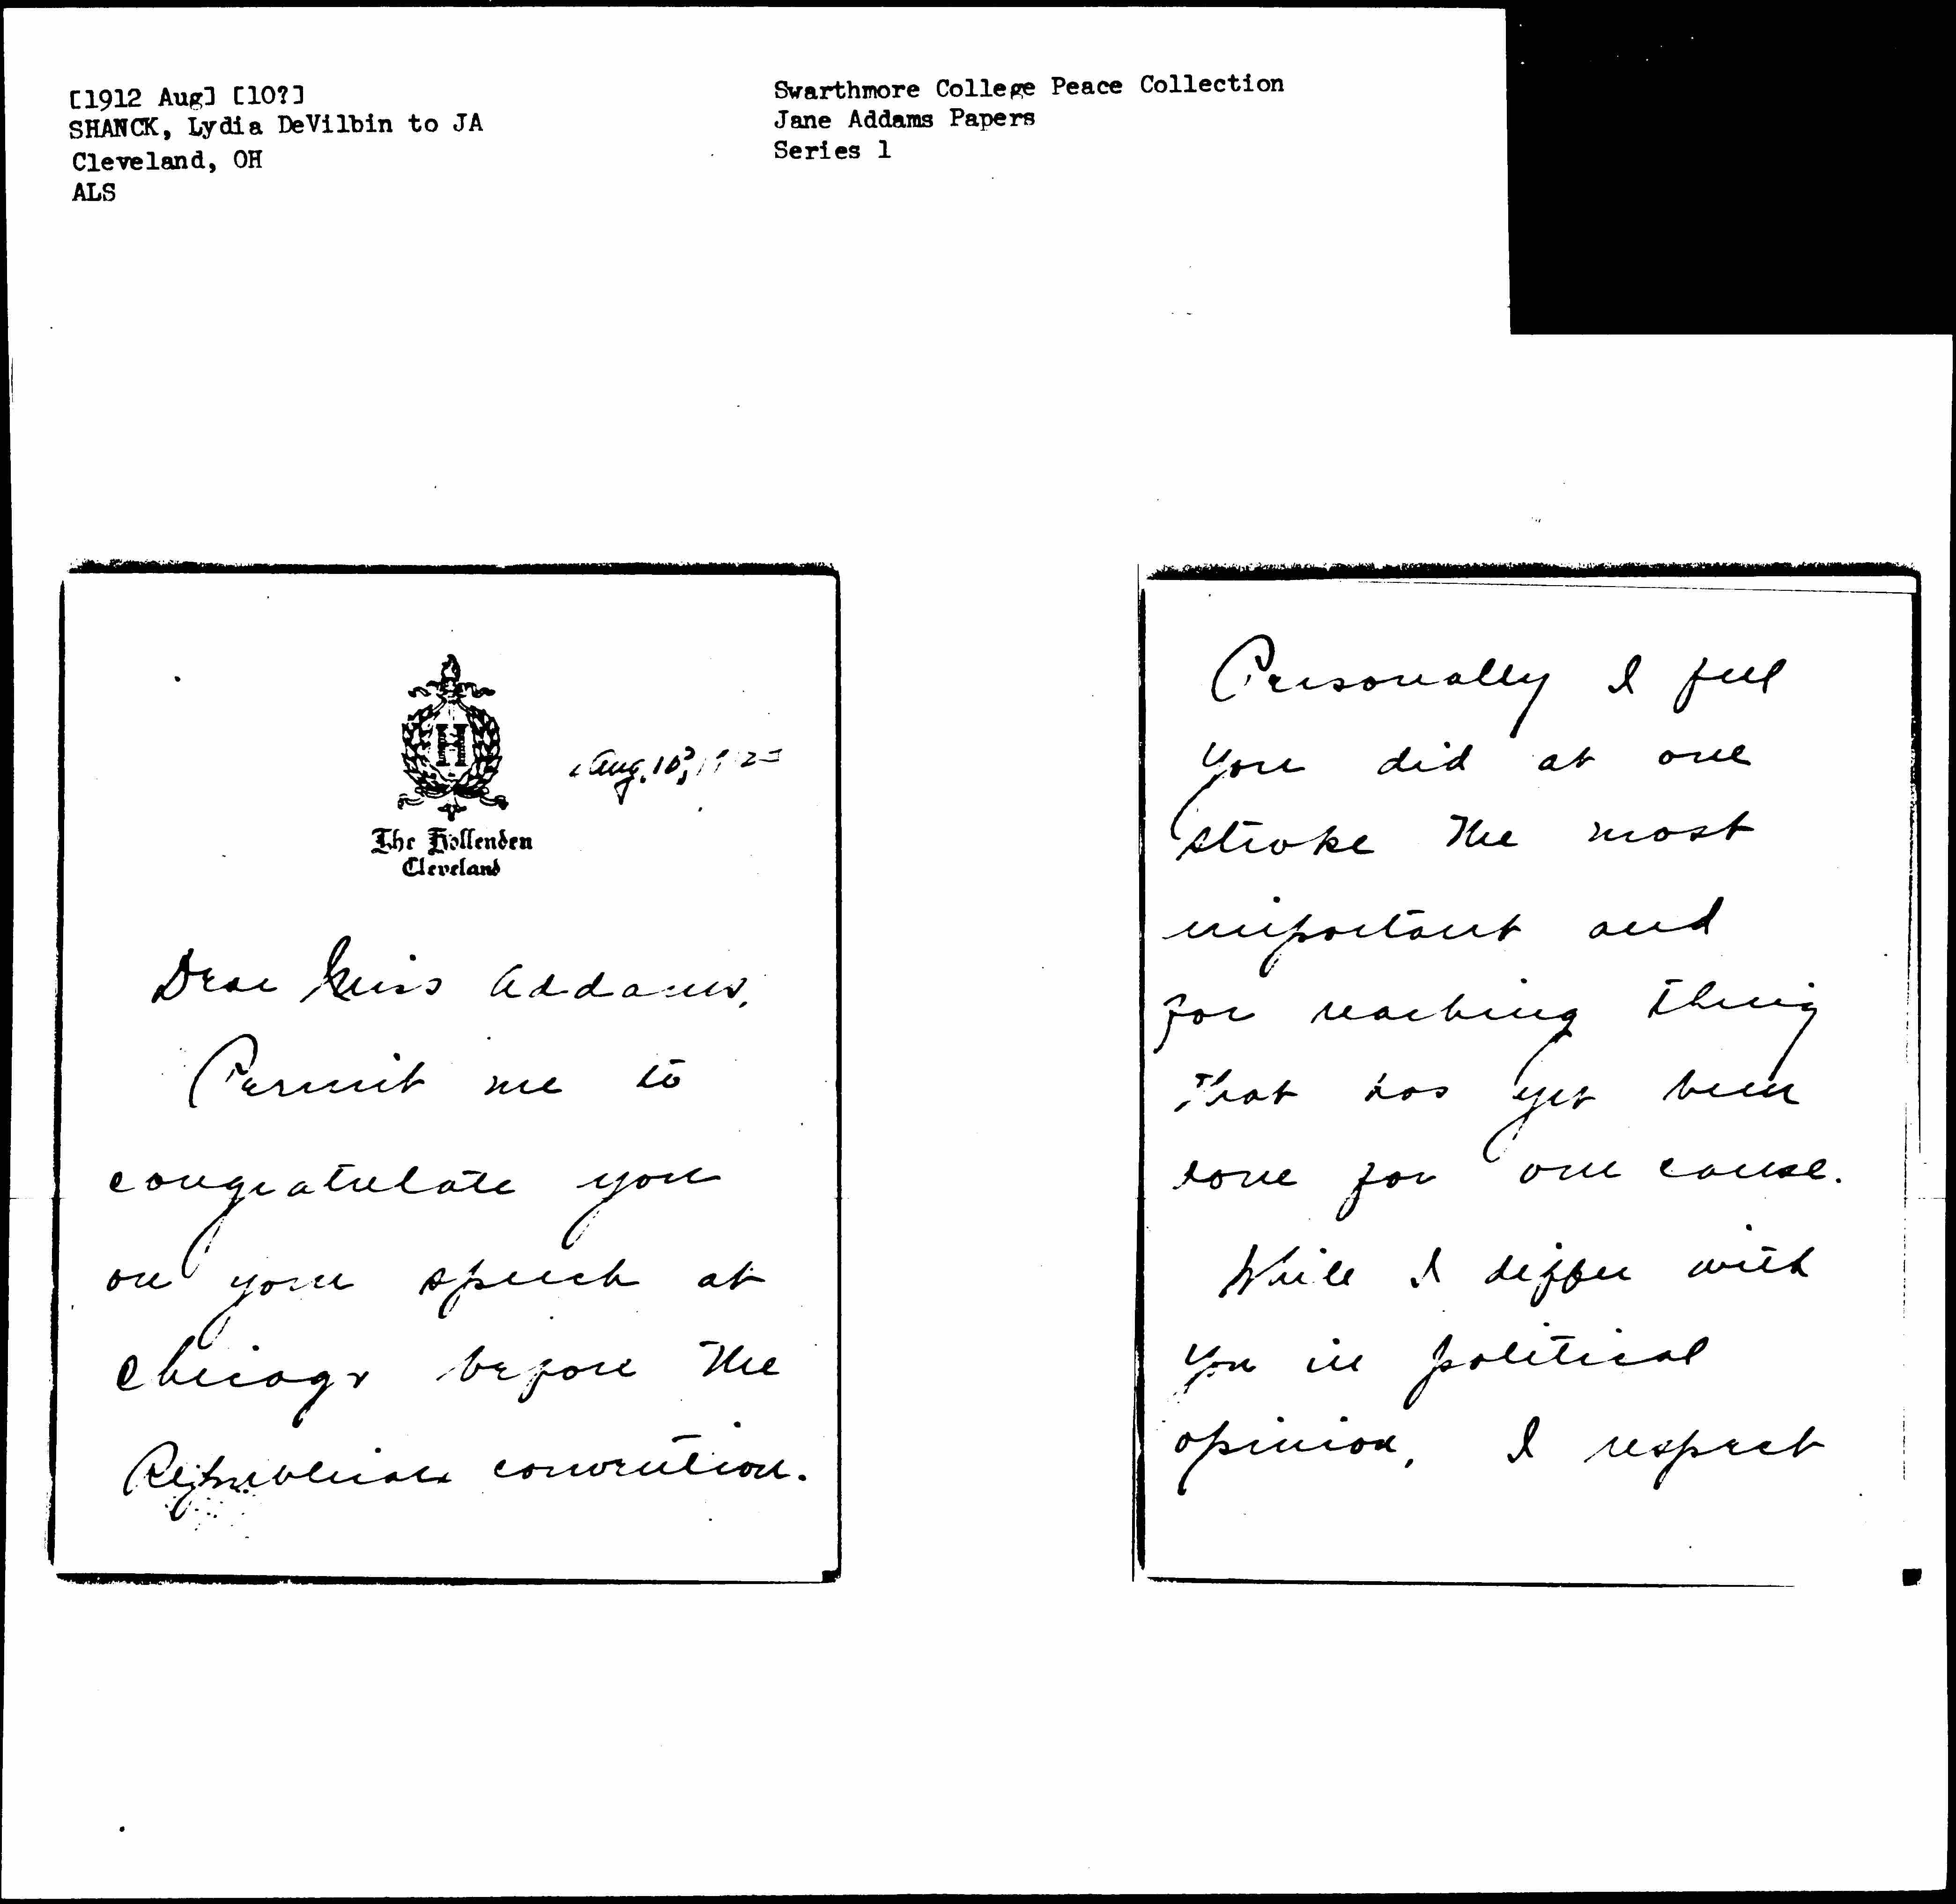 [1912 Aug] [10?]
SHANCK, Lydia DeVilbin to JA
Cleveland, OH
ALS
Swarthmore College Peace Collection
Jane Addams Papers
Series 1
H
Aug. 10?,
The Hollenden
Cleveland
Dear Miss Addams,
Permit me to
congratulate you
on your speech at
Chicago before the
Republican convention.
Personally I feel
you did at one
stroke the most
important and
far reaching thing
that has yet been
done for our cause.
While I differ with
you in political
opinion, I respect